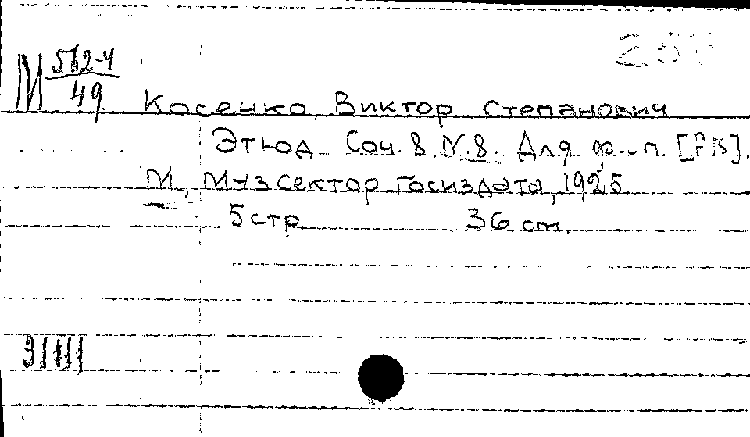 М 512-4
49
Косенко, Виктор Степанович
Этюд. Соч. 8 N. 8. Для ф.-п. [F IS].
М, Музсектор Госиздата, 1925
5 стр 36 cm.